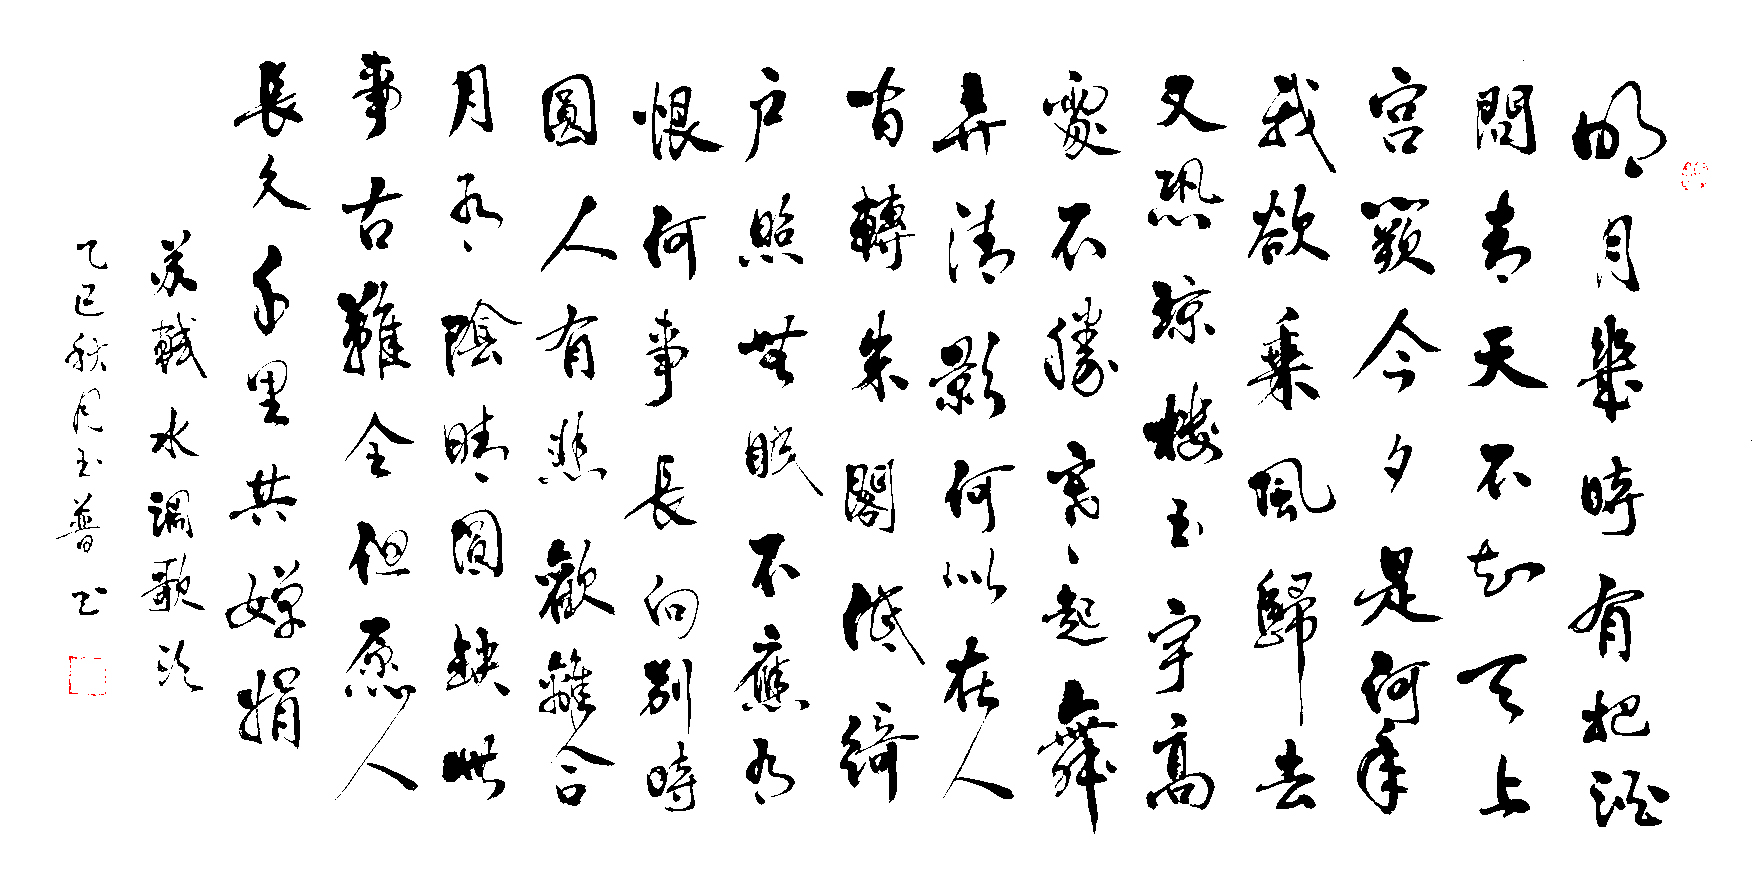 明月幾時有把酒
問青天不知天上
宮闕今夕是何年
我欲乘風歸去
又恐琼樓玉宇高
處不勝寒起舞
弄清影何似在人
間轉朱閣低綺
户照無眠不應有
恨何事長向别時
圓人有悲歡離合
月有陰晴圓缺此
事古難全但愿人
長久千里共嬋娟
蘇軾水調歌頭
乙巳秋月玉普书